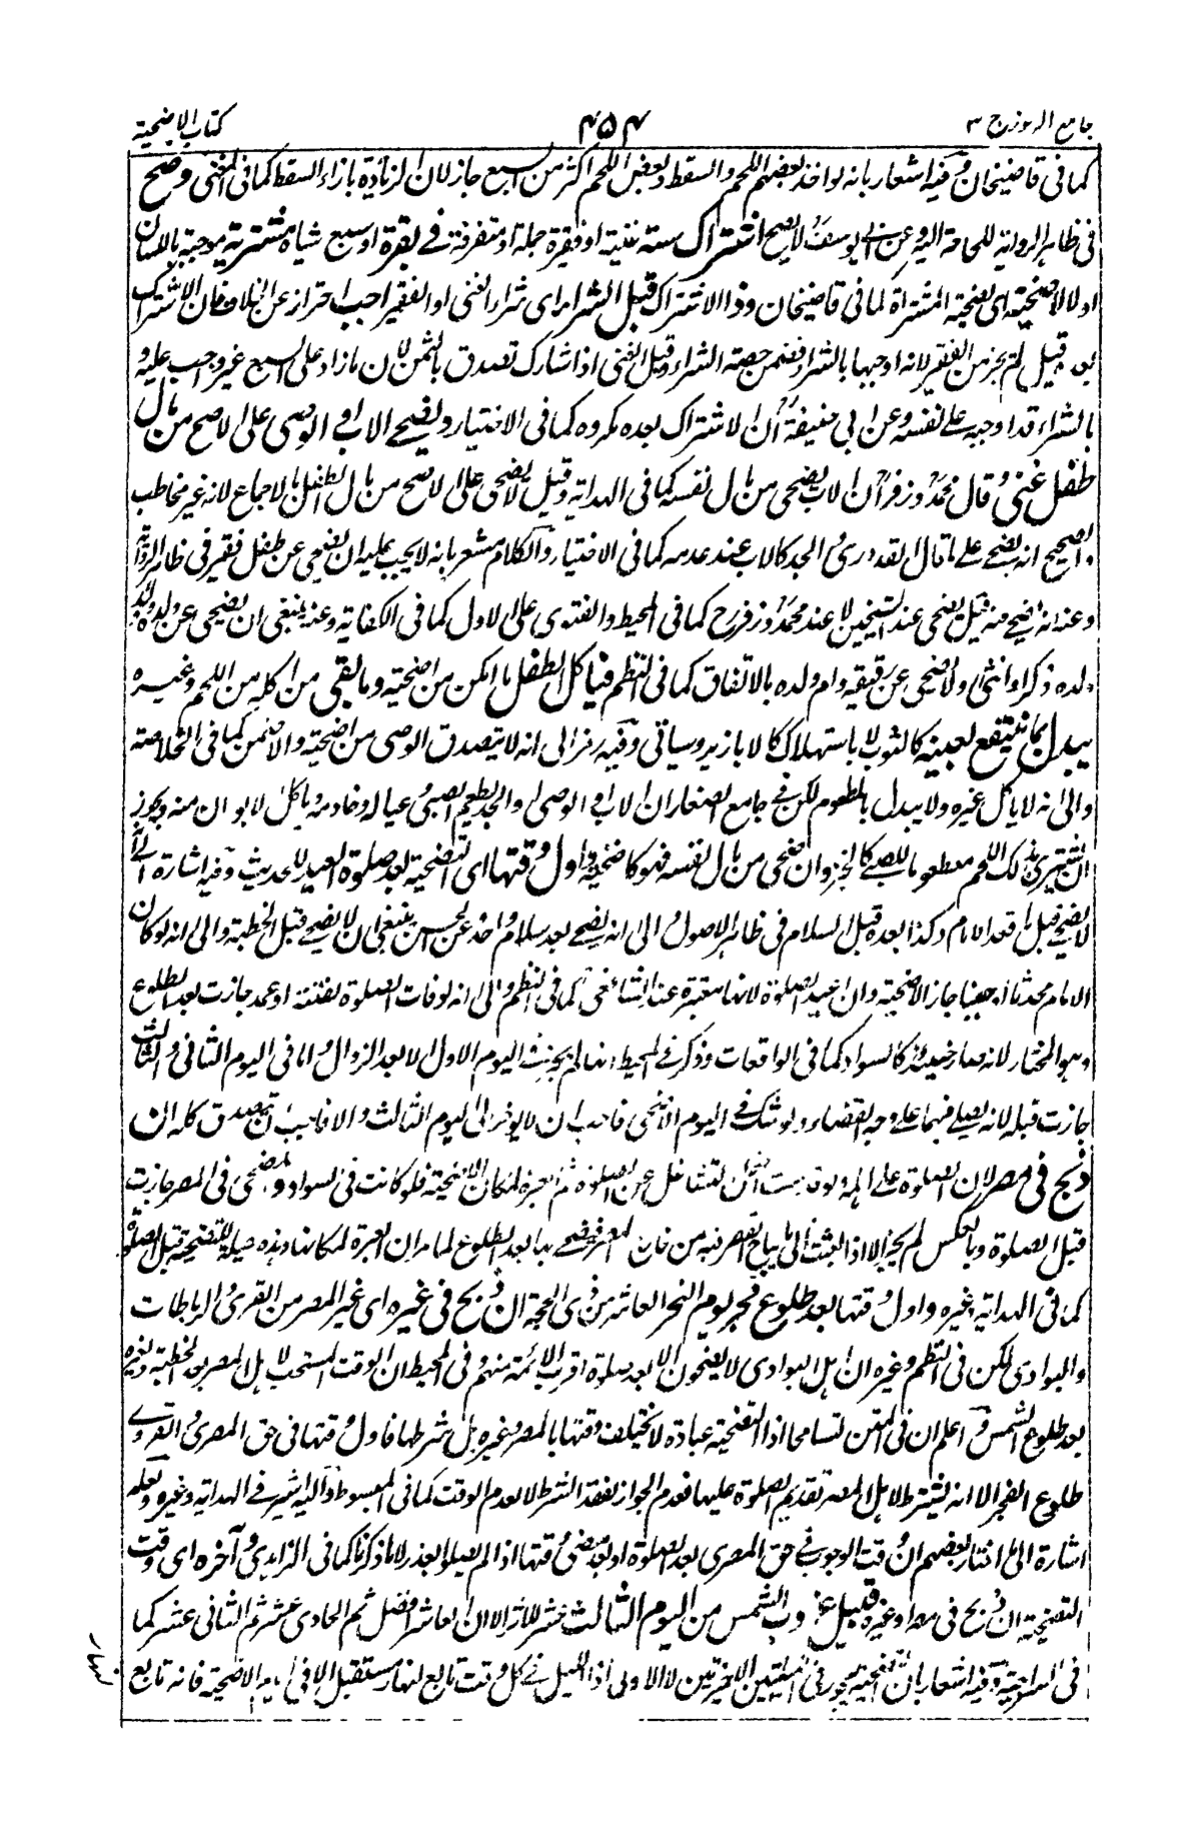 جامع الرموز ج ٣
٤٥٤
كتاب الاضحية
كما فى قاضيخان وفيه اشعار بانه لو اخذ بعضهم اللحم والسقط وبعض اللحم اكثر من السبع جاز لان الزيادة بازاء السقط كما فى المغنى وصح
فى ظاهر الرواية للحاجة اليه وعن ابى يوسف لا يصح اشتراك ستة غنية او فقيرة جملة او متفرقة فى بقرة او سبع شياه مشترية موجبة باللسان
اولا لاضحيته اى لضحية المشتراة كما فى قاضيخان وذا الاشتراك قبل الشراء اى شراء الغنى او الفقير احب احتراز عن الخلاف فان الاشتراك
بعد قيل لم يجز من الفقير لانه اوجبها بالشراء فضمن حصته الشراء وقيل الغنى اذا شارك تصدق بالثمن لان ما زاد على السبع غير واجب عليه و
بالشراء قد اوجبه على نفسه وعن ابى حنيفة ان الاشتراك بعده مكروه كما فى الاختيار ويضحى الاب او الوصى على الاصح من مال
طفل غنى وقال محمد وزفر ان الاب يضحى من مال نفسه كما فى الهداية وقيل لا يضحى على الاصح من مال الطفل بالاجماع لانه غير مخاطب
والصحيح انه يضحى على ما قال القدورى والجد كالاب عند عدمه كما فى الاختيار والكلام مشعر بانه لا يجب عليه ان يضحى عن طفل فقير فى ظاهر الرواية
وعنه انه يضحى منه قيل يضحى عند الشيخين لا عند محمد وزفر رح كما فى المحيط والفتوى على الاول كما فى الكفاية وعنه ينبغى ان يضحى عن ولده وولد
ولده ذكرا وانثى ولا يضحى عن رقيقه وام ولده بالاتفاق كما فى النظم فياكل الطفل ما امكن من اضحيته وما بقى من اكله من اللحم وغيره
يبدل بما ينتفع بعينه كالثوب لا باستهلاك كالابازير وسياتى وفيه رمز الى انه لا يتصدق الوصى من اضحيته والا ضمن كما فى الخلاصة
والى انه لا ياكل غيره ولا يبدل بالمطعوم لكن فى جامع الصغار ان الاب او الوصى او الجد يطعم الصبى وعياله وخادمه وياكل الابوان منه ويجوز
ان يشترى بذلك اللحم مطعوما للصبى كالخبز وان ضحى من مال نفسه فهو كاضحيته واول وقتها اى التضحية بعد صلوة العيد للحديث وفيه اشارة الى انه
لا يضحى قبل ما قعد الامام وكذا بعده قبل السلام فى ظاهر الاصول والى انه يضحى بعد سلام واحد وعن الحسن ينبغى ان لا يضحى قبل الخطبة والى انه لو كان
الامام محدثا او جنبا جاز الاضحية وان اعيد الصلوة لانها معتبرة عند الشافعى كما فى النظم والى انه لو فات الصلوة بفتنة او عمد جازت بعد الطلوع
وهو المختار لانه صار حينئذ كالسواد كما فى الواقعات وذكر فى المحيط انها لم يجز فى اليوم الاول الا بعد الزوال واما فى اليوم الثانى والثالث
جازت قبله لانه يصلى فيهما على وجه القضاء ولو شك فى اليوم الاضحى فاحب ان لا يؤخر الى اليوم الثالث والا فاحب ان يتصدق كله ان
ذبح فى مصر لان الصلوة على اهله لتشاغل عن الصلوة ثم العبرة لمكان الاضحية فلو كانت فى السواد والمضحى فى المصر جازت
قبل الصلوة وبالعكس لم يجز الا اذا بعث الى ما يباح القصر فيه من خارج المصر فيضحى بها بعد الطلوع لما مر ان العبرة لمكانها وهذه حيلة للتضحية قبل الصلوة
كما فى الهداية وغيره واول وقتها بعد طلوع فجر يوم النحر العاشر من ذى الحجة ان ذبح فى غيره اى غير المصر من القرى والرباطات
والبوادى لكن فى النظم وغيره ان اهل البوادى لا يضحون الا بعد صلوة اقرب الائمة منهم وفى المحيط ان الوقت المستحب لاهل المصر بعد الخطبة ولغيره
بعد طلوع الشمس واعلم ان فى المتن تسامحا اذ التضحية عبادة لا يختلف وقتها بالمصر وغيره بل شرطها فاول وقتها فى حق المصرى والقروى
طلوع الفجر الا انه يشترط لاهل المصر تقديم الصلوة عليها فعدم الجواز لفقد الشرط لا بعدم الوقت كما فى المبسوط واليه اشير فى الهداية وغيره ولعله
اشارة الى ما اختار بعضهم ان وقت الوجوب فى حق المصرى بعد الصلوة او بعد مضى وقتها اذا لم يصلوا بعذر ولا ما ذكرنا كما فى الزاهدى وآخره اى وقت
التضحية ان ذبح فى مصر او غيره قبيل غروب الشمس من اليوم الثالث عشر للاثر الا ان العاشر افضل ثم الحادى عشر ثم الثانى عشر كما
فى السراجية وفيه اشعار بان التضحية يجوز فى الليلتين الاخيرتين لا الاولى اذ الليل فى كل وقت تابع لنهار مستقبل الا فى ايام الاضحية فانه تابع
لنهار